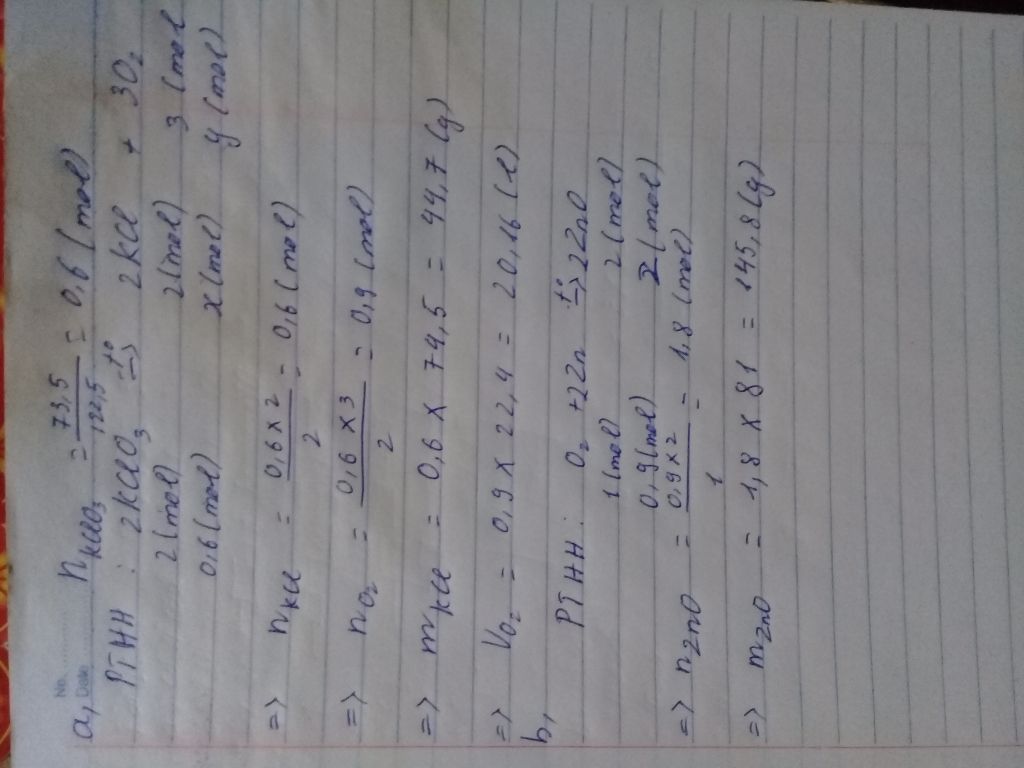 No. ............
Date
a, n KClO₃ = 73,5 / 122,5 = 0,6 (mol)
PTHH : 2KClO₃ t°→ 2KCl + 3O₂
2 (mol) 2 (mol) 3 (mol
0,6 (mol) x (mol) y (mol)
=> nKCl = 0,6 x 2 / 2 = 0,6 (mol)
=> nO₂ = 0,6 x 3 / 2 = 0,9 (mol)
=> mKCl = 0,6 x 74,5 = 44,7 (g)
=> VO₂ = 0,9 x 22,4 = 20,16 (l)
b,
PTHH : O₂ + 2Zn t°→ 2ZnO
1 (mol) 2 (mol)
0,9 (mol) z (mol)
=> nZnO = 0,9 x 2 / 1 = 1,8 (mol)
=> mZnO = 1,8 x 81 = 145,8 (g)